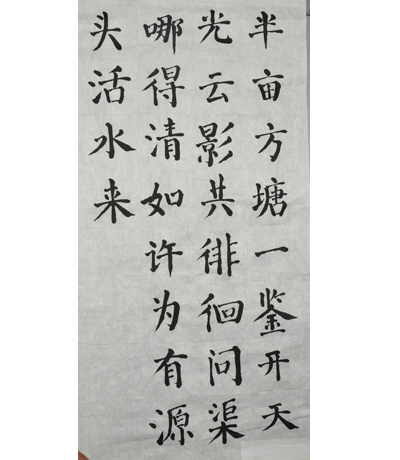 半亩方塘一鉴开天
光云影共徘徊问渠
哪得清如许为有源
头活水来